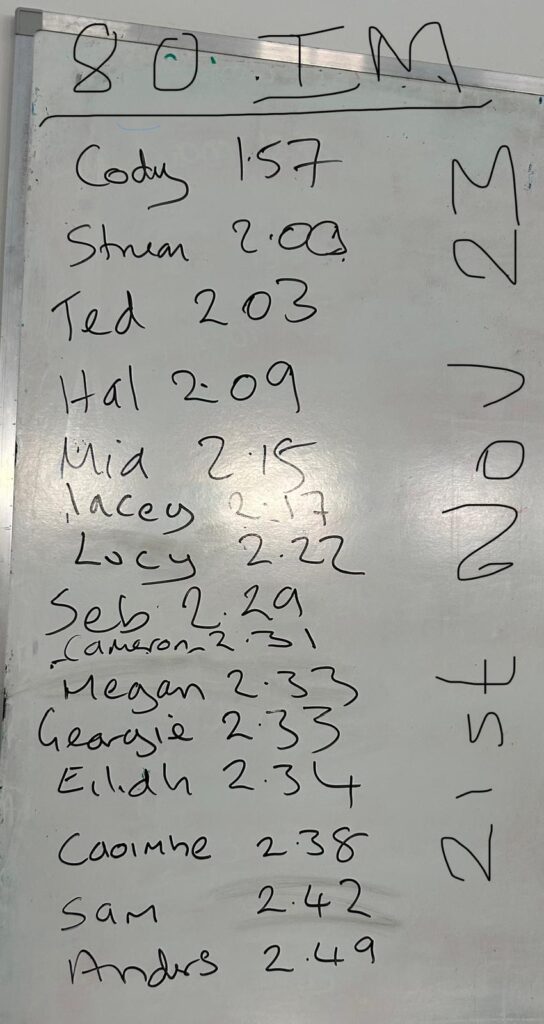 80 IM
Cody 1.57
Struan 2.00
Ted 2 03
Hal 2.09
Mia 2.15
Lacey 2.17
Lucy 2.22
Seb 2.29
Cameron 2.31
Megan 2.33
Georgie 2.33
Eilidh 2.34
Caoimhe 2.38
Sam 2.42
Anders 2.49
21st Nov 23